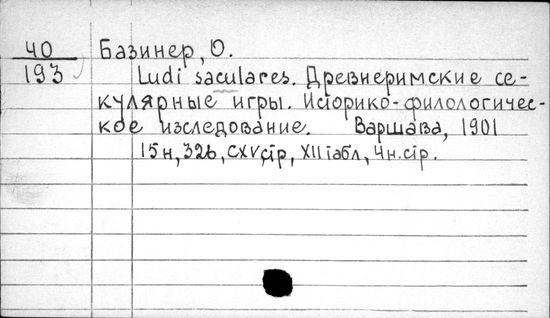 40 Базинер, О.
193 Ludi saculares. Древнеримские се-
кулярные игры. Историко-филологичес-
кое исследование. Варшава, 1901
15н, 326, CXV стр, XII табл, 4н. стр.